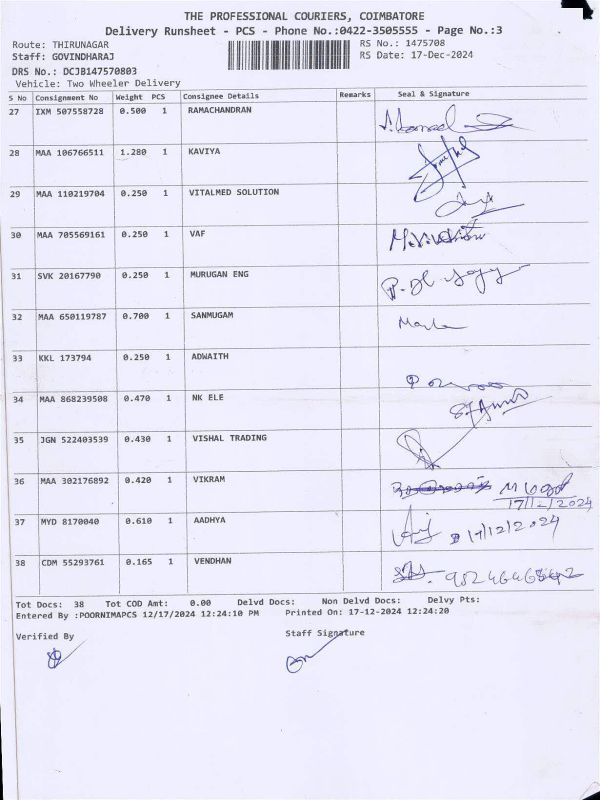 THE PROFESSIONAL COURIERS, COIMBATORE
Delivery Runsheet - PCS - Phone No.:0422-3505555 - Page No.:3
Route: THIRUNAGAR RS No.: 1475708
Staff: GOVINDHARAJ RS Date: 17-Dec-2024
DRS No.: DCJB147570803
Vehicle: Two Wheeler Delivery
S No Consignment No Weight PCS Consignee Details Remarks Seal & Signature
27 IXM 507558728 0.500 1 RAMACHANDRAN
28 MAA 106766511 1.280 1 KAVIYA
29 MAA 110219704 0.250 1 VITALMED SOLUTION
30 MAA 705569161 0.250 1 VAF
31 SVK 20167790 0.250 1 MURUGAN ENG
32 MAA 650119787 0.700 1 SANMUGAM
33 KKL 173794 0.250 1 ADWAITH
34 MAA 868239508 0.470 1 NK ELE
35 JGN 522403539 0.430 1 VISHAL TRADING
36 MAA 302176892 0.420 1 VIKRAM
17/12/2024
37 MYD 8170040 0.610 1 AADHYA 17/12/2024
38 CDM 55293761 0.165 1 VENDHAN
Tot Docs: 38 Tot COD Amt: 0.00 Delvd Docs: Non Delvd Docs: Delvy Pts:
Entered By :POORNIMAPCS 12/17/2024 12:24:10 PM Printed On: 17-12-2024 12:24:20
Verified By Staff Signature